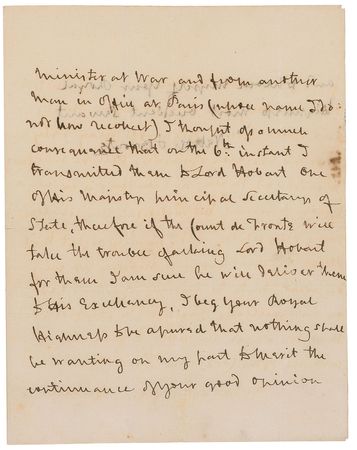 Minister at War, and from another
Man in Office at Paris (whose name I do
not now recolect) I thought of so much
consequence that on the 6th instant I
transmitted them to Lord Hobart One
of His Majestys principal Secretarys of
State, therefore if the Count de Front will
take the trouble of asking Lord Hobart
for them I am sure he will deliver them
to His Excellency, I beg Your Royal
Highness to be assured that nothing shall
be wanting on my part to merit the
continuance of Your good opinion